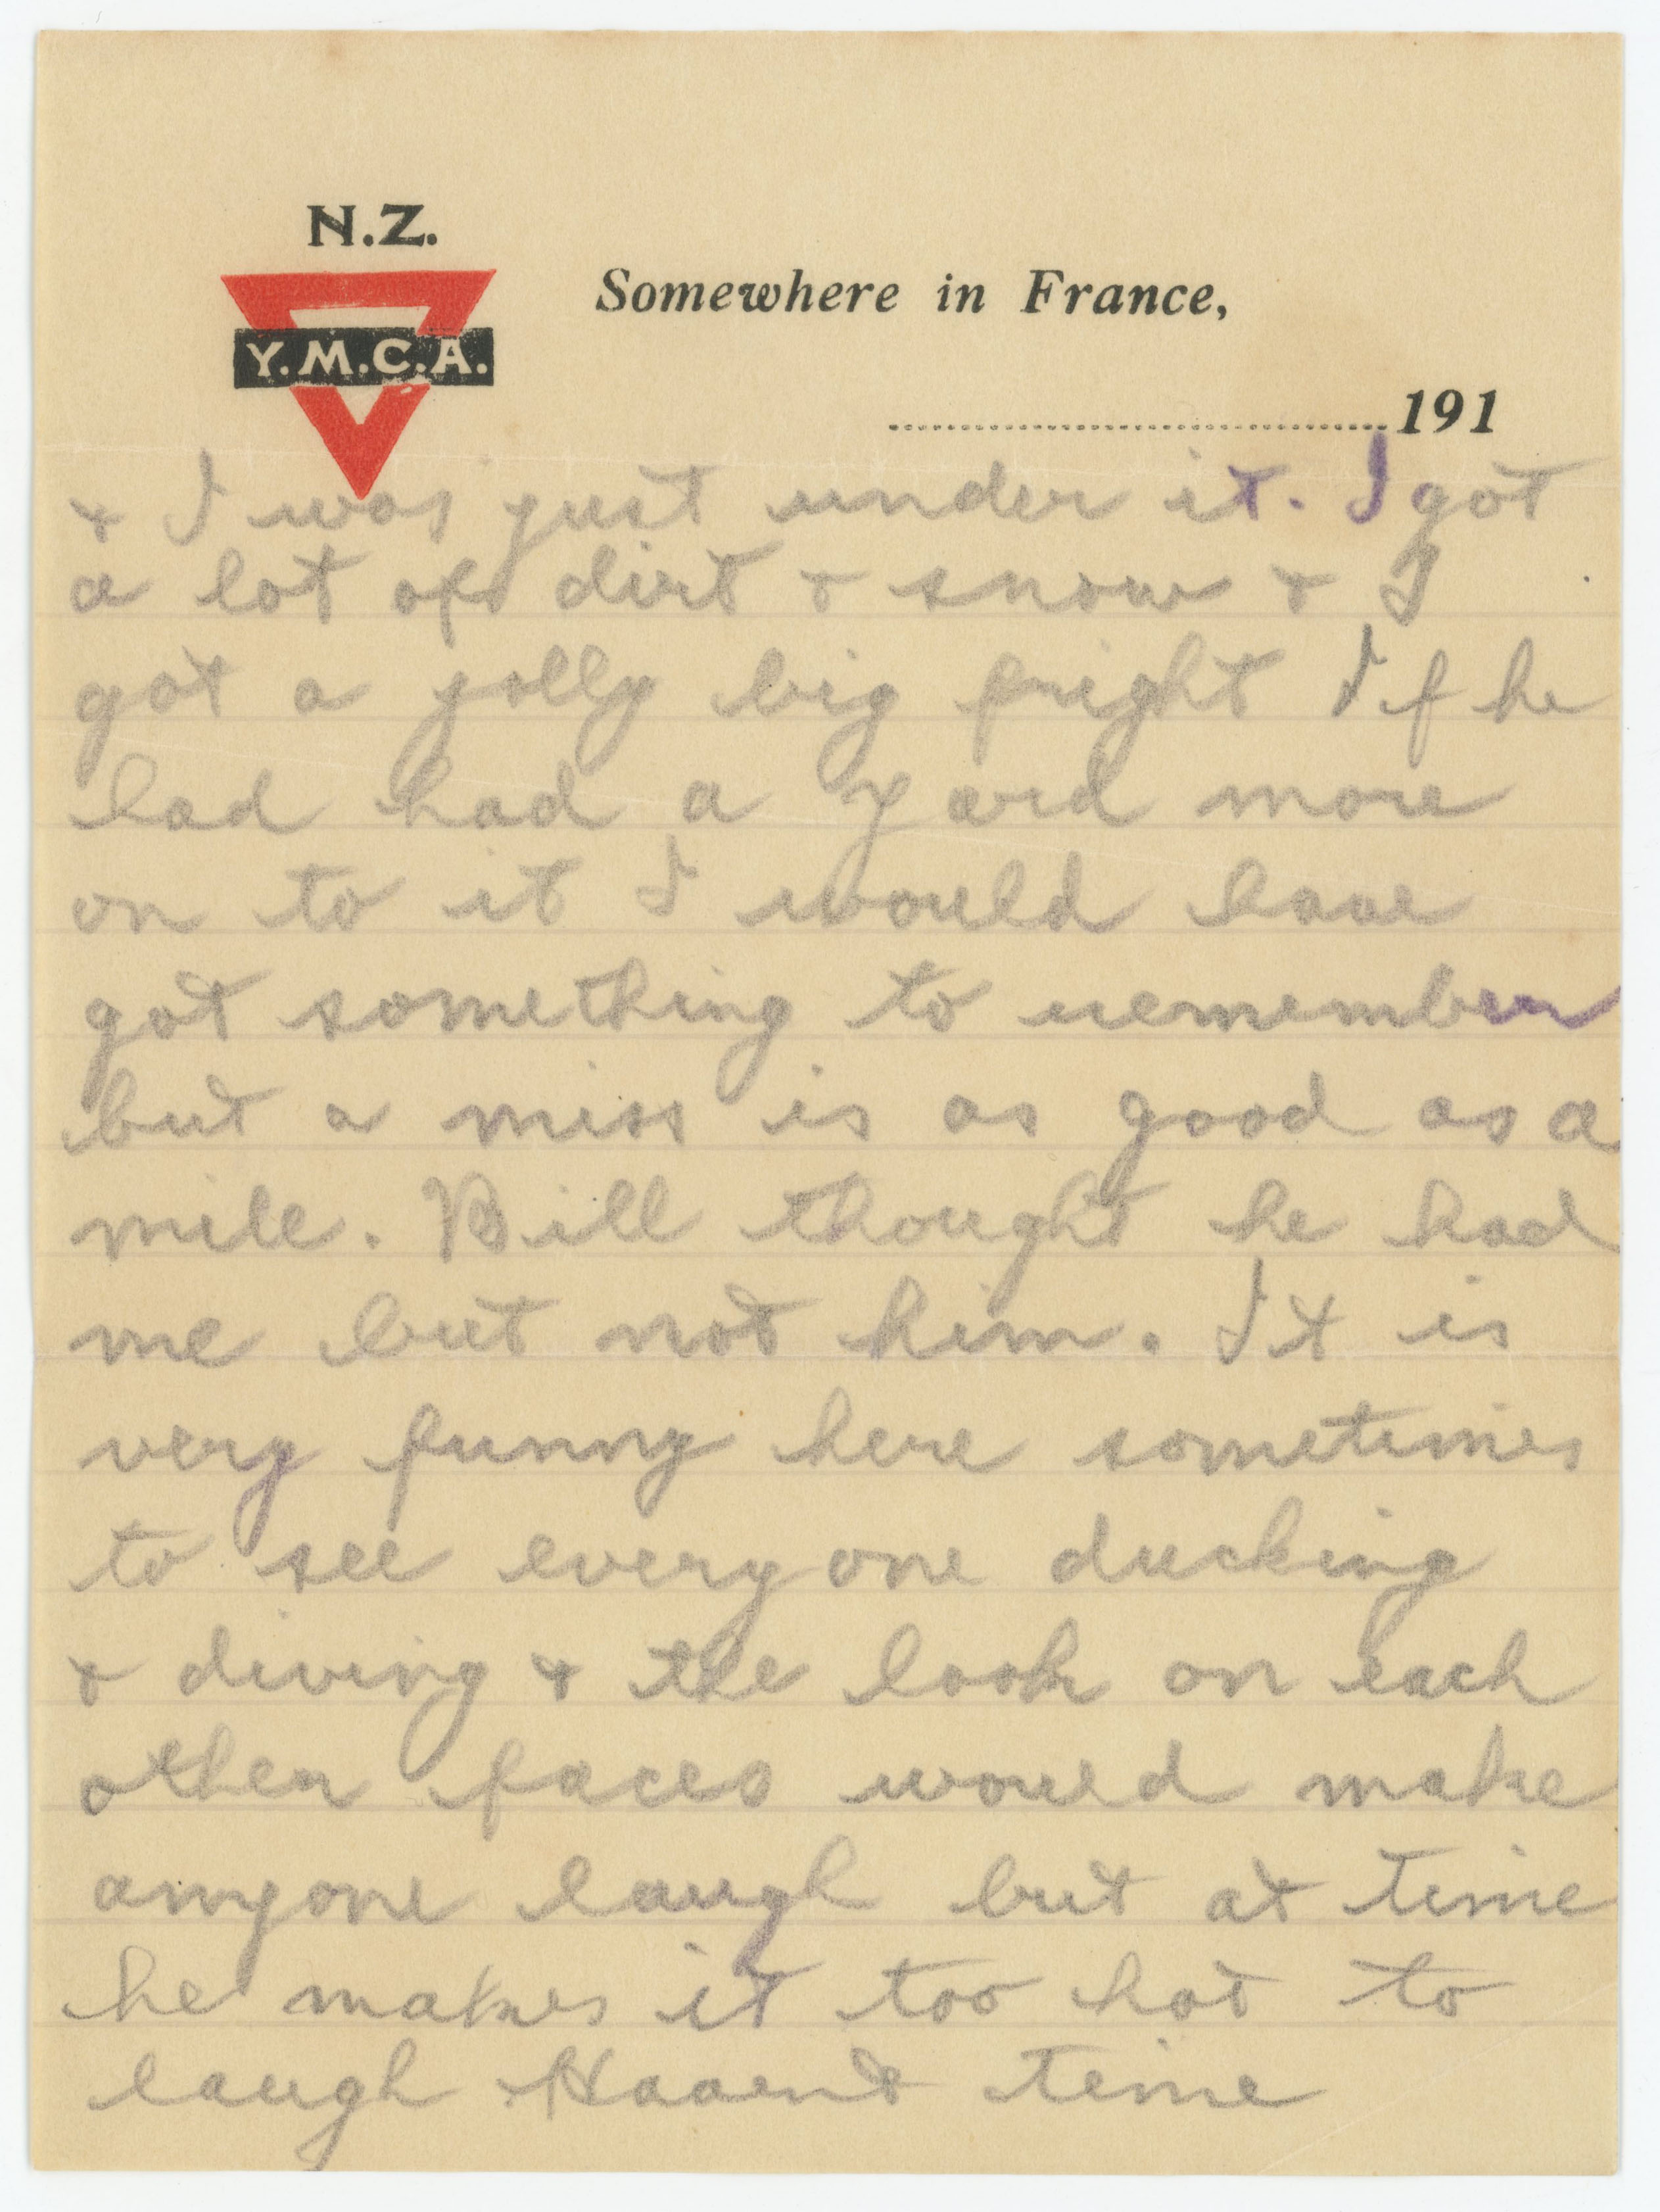 N.Z.
Y.M.C.A.
Somewhere in France,
191
& I was just under it. I got
a lot of dirt & snow & I
got a jolly big fright If he
had had a yard more
on to it I would have
got something to remember
but a miss is as good as a
mile. Bill thought he had
me but not him. It is
very funny here sometimes
to see everyone ducking
& diving & the look on each
other faces would make
anyone laugh but at time
he makes it too hot to
laugh Haavent time